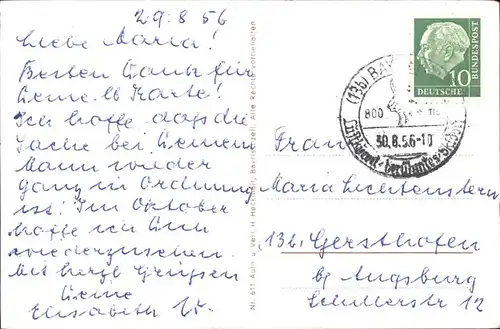 29.8.56
Liebe Maria!
Besten Dank für
Deine lb Karte!
Ich hoffe dass die
Sache bei Deinem
Mann wieder
ganz in Ordnung
ist! Im Oktober
hoffe ich Dich
wiederzusehen.
Mit herzl Grüssen
Deine
Elisabeth
Nr. 611 Aufn. u. Verl. H.
Alle Rechte vorbehalten
10
DEUTSCHE
BUNDESPOST
(13b) BAY
800
30.8.56-10
Frau
Maria Lechtenstern
13b, Gersthofen
bg Augsburg
Schillerstr 12